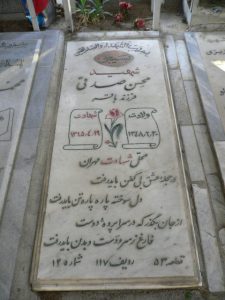 شهید
محسن صدقی
فرزند باقر
ولادت
۱۳۴۸/۲/۲۰
شهادت
۱۳۶۵/۴/۱۹
محل شهادت مهران
در حجله عشق بی کفن باید رفت
دل سوخته پاره پاره تن باید رفت
از جان بگذر که در سراپرده دوست
فارغ ز سر و دست و بدن باید رفت
قطعه ۵۳ ردیف ۱۱۷ شماره ۱۲